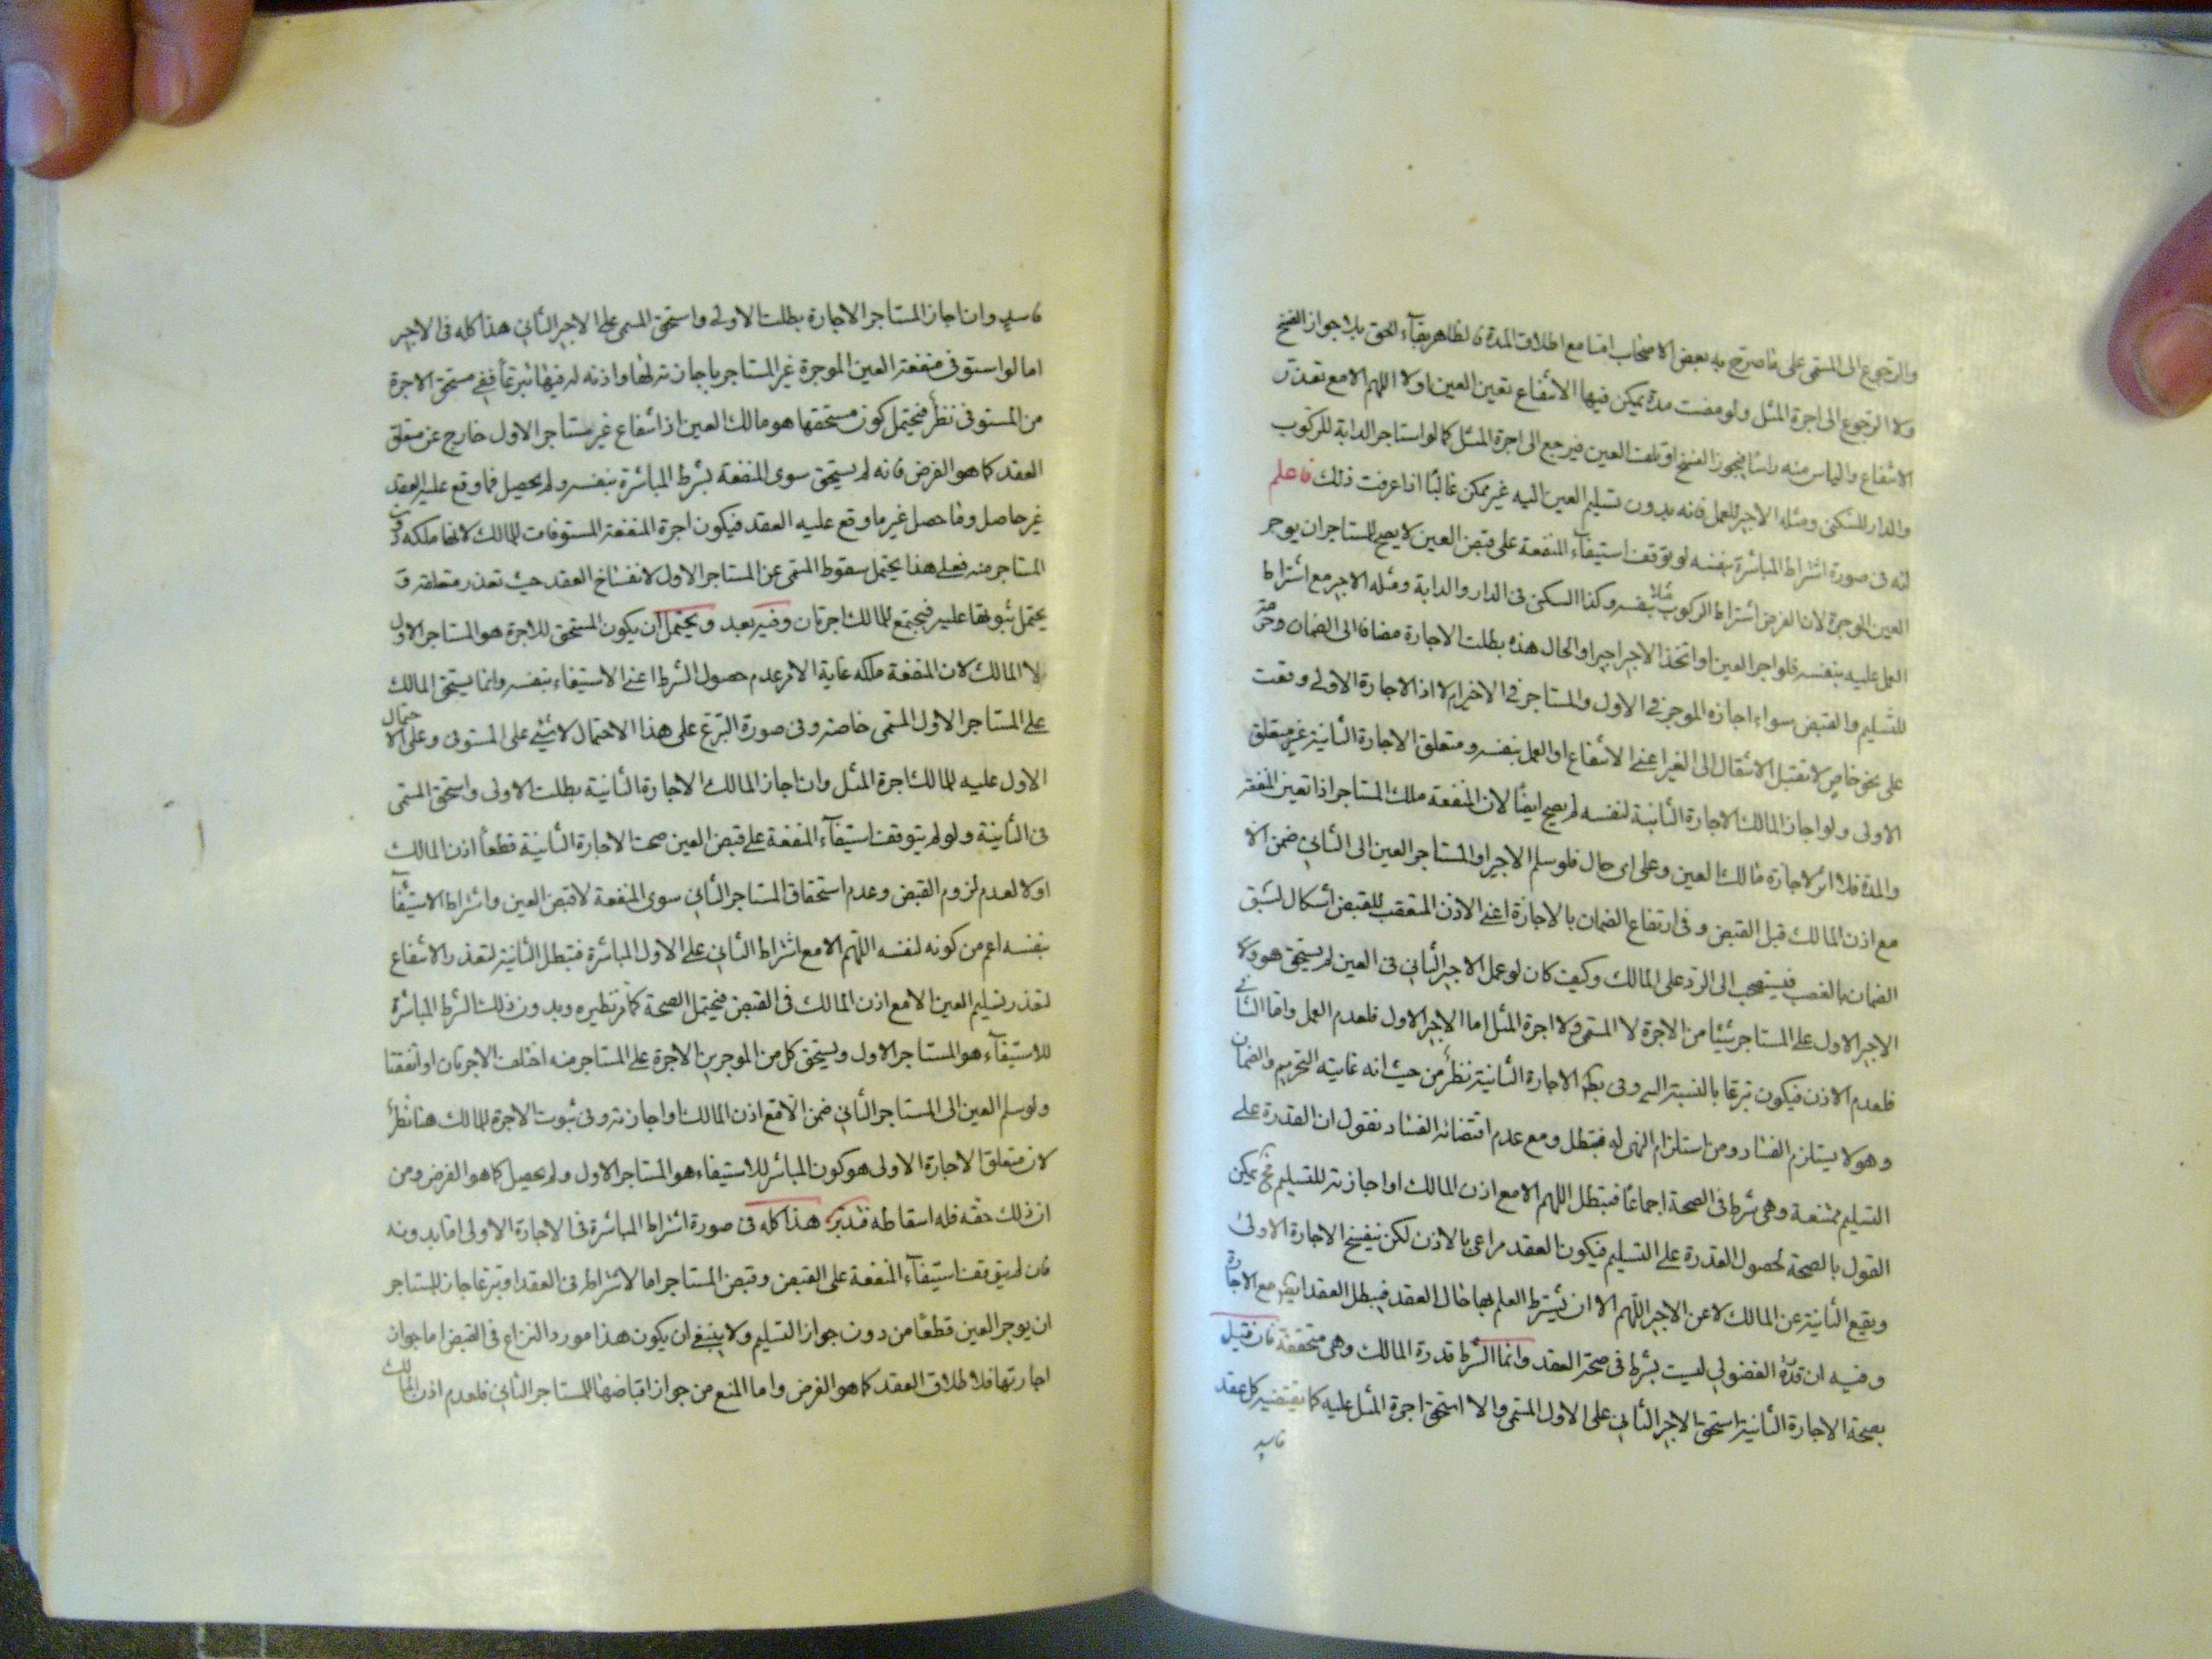 والرجوع الى المسمى على ما صرح به بعض الاصحاب اما مع اطلاق المدة فالظاهر بقاء الحق بلا جواز الفسخ
ولا الرجوع الى اجرة المثل ولو مضت مدة يمكن فيها الانتفاع تعين العين اولا اللهم الا مع تعذر
الانتفاع والياس منه راسا فيجوز الفسخ او تلفت العين فيرجع الى اجرة المثل كما لو استاجر الدابة للركوب
والدار للسكنى ومثله الاجير للعمل فانه بدون تسليم العين اليه غير ممكن غالبا اذا عرفت ذلك فاعلم
انه فى صورة اشتراط المباشرة بنفسه لو توقف استيفاء المنفعة على قبض العين لا يصح للمستاجر ان يوجر
العين الموجرة لان الفرض اشتراط الركوب مثلا بنفسه وكذا السكنى فى الدار والدابة ومثله الاجير مع اشتراط
العمل عليه بنفسه فلو اجر العين او اتخذ الاجير اجيرا والحال هذه بطلت الاجارة مضافا الى الضمان وحرمة
للتسليم والقبض سواء اجازه الموجر فى الاول والمستاجر فى الاخير ام لا اذ الاجارة الاولى وقعت
على نحو خاص لا تقبل الانتقال الى الغير اعنى الانتفاع او العمل بنفسه ومتعلق الاجارة الثانية غير متعلق
الاولى ولو اجاز المالك الاجارة الثانية لنفسه لم يصح ايضا لان المنفعة ملك المستاجر اذا تعين المنفعة
والمدة فلا اثر لاجازة مالك العين وعلى اى حال فلو سلم الاجير او المستاجر العين الى الثانى ضمن الا
مع اذن المالك قبل القبض وفى ارتفاع الضمان بالاجازة اعنى الاذن المتعقب للقبض اشكال لسبق
الضمان بالغصب فيستصحب الى الرد على المالك وكيف كان لو عمل الاجير الثانى فى العين لم يستحق هو ولا
الاجير الاول على المستاجر شيئا من الاجرة لا المسمى ولا اجرة المثل اما الاجير الاول فلعدم العمل واما الثانى
فلعدم الاذن فيكون تبرعا بالنسبة اليه وفى بطلان الاجارة الثانية نظر من حيث انه غايته التحريم والضمان
وهو لا يستلزم الفساد ومن استلزام النهى له فتبطل ومع عدم اقتضائه الفساد نقول ان القدرة على
التسليم ممتنعة وهى شرط فى الصحة اجماعا فتبطل اللهم الا مع اذن المالك او اجازته للتسليم فح يمكن
القول بالصحة لحصول القدرة على التسليم فيكون العقد مراعى بالاذن لكن ينفسخ الاجارة الاولى
ويقع الثانية عن المالك لا عن الاجير اللهم الا ان يشترط العلم بها حال العقد فيبطل العقد ايضا مع الاجازة
وفيه ان قدرة الفضولى ليست بشرط فى صحة العقد وانما الشرط قدرة المالك وهى متحققة فان قيل
بصحة الاجارة الثانية استحق الاجير الثانى على الاول المسمى والا استحق اجرة المثل عليه كما يقتضيه كل عقد
فاسد
فاسد وان اجاز المستاجر الاجارة بطلت الاولى واستحق المسمى على الاجير الثانى هذا كله فى الاجير
اما لو استوفى منفعة العين الموجرة غير المستاجر باجازته لها واذنه له فيها تبرعا ففى مستحق الاجرة
من المستوفى نظر فيحتمل كون مستحقها هو مالك العين اذ انتفاع غير مستاجر الاول خارج عن متعلق
العقد كما هو الفرض فانه لم يستحق سوى المنفعة بشرط المباشرة بنفسه ولم يحصل فما وقع عليه العقد
غير حاصل وما حصل غير ما وقع عليه العقد فيكون اجرة المنفعة المستوفات للمالك لانها ملكه دون
المستاجر منه فعلى هذا يحتمل سقوط المسمى عن المستاجر الاول لانفساخ العقد حيث تعذر متعلقه و
يحتمل ثبوتها عليه فيجتمع للمالك اجرتان وفيه بعد ويحتمل ان يكون المستحق للاجرة هو المستاجر الاول
لا المالك لان المنفعة ملكه غاية الامر عدم حصول الشرط اعنى الاستيفاء بنفسه وانما يستحق المالك
على المستاجر الاول المسمى خاصة وفى صورة التبرع على هذا الاحتمال لا شىء على المستوفى وعلى الاحتمال
الاول عليه للمالك اجرة المثل وان اجاز المالك الاجارة الثانية بطلت الاولى واستحق المسمى
فى الثانية ولو لم يتوقف استيفاء المنفعة على قبض العين صحت الاجارة الثانية قطعا اذن المالك
اولا لعدم لزوم القبض وعدم استحقاق المستاجر الثانى سوى المنفعة لا قبض العين واشتراط الاستيفاء
بنفسه اعم من كونه لنفسه اللهم الا مع اشتراط الثانى على الاول المباشرة فتبطل الثانية لتعذر الانتفاع
لتعذر تسليم العين الا مع اذن المالك فى القبض فيحتمل الصحة كما مر نظيره وبدون ذلك الشرط المباشرة
للاستيفاء هو المستاجر الاول ويستحق كل من الموجرين الاجرة على المستاجر منه اختلف الاجرتان او اتفقتا
ولو سلم العين الى المستاجر الثانى ضمن الا مع اذن المالك او اجازته وفى ثبوت الاجرة للمالك هنا نظر
لان متعلق الاجارة الاولى هو كون المباشر للاستيفاء هو المستاجر الاول ولم يحصل كما هو الفرض ومن
ان ذلك حقه فله اسقاطه فتدبر هذا كله فى صورة اشتراط المباشرة فى الاجارة الاولى اما بدونه
فان لم يتوقف استيفاء المنفعة على القبض وقبض المستاجر اما لاشتراط فى العقد او تبرعا جاز للمستاجر
ان يوجر العين قطعا من دون جواز التسليم ولا ينبغى ان يكون هذا مورد النزاع فى القبض اما جواز
اجارتها فلاطلاق العقد كما هو الفرض واما المنع من جواز اقباضها للمستاجر الثانى فلعدم اذن المالك